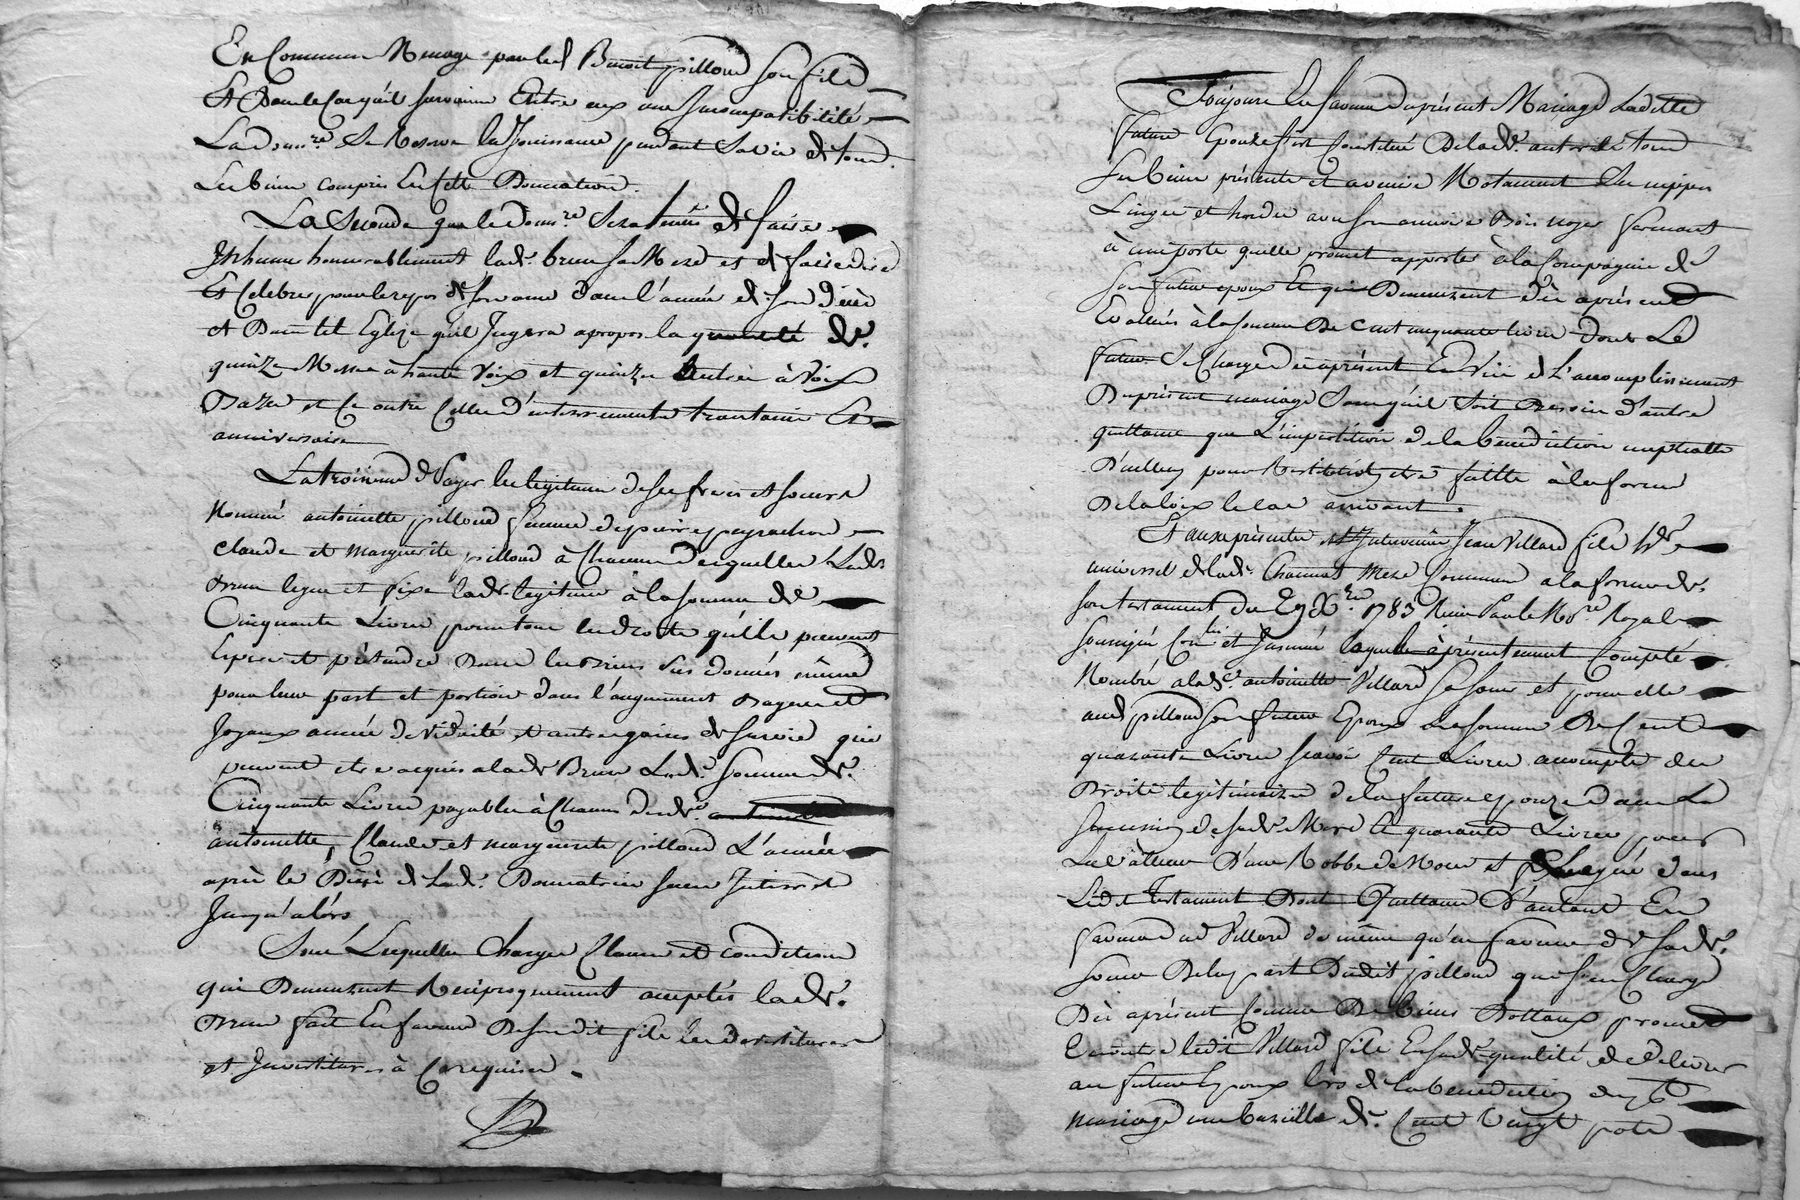 En Commun Menage par led Benoit pilloud son fils
Et Dans le Cas qu'il survienne Entre eux une Incompatibilité
La donnre. Se Reserve la Jouissance pendant Sa vie de tous
Les biens compris En Cette Donnation.
La Seconde que le donnre. Sera tenu de faire
Inhumer honnorablement lade. brun sa Mere et de faire dire
Et Celebrer pour le repos de son ame dans l'année de son décès
et Dans tel Eglize qu'il Jugera apropos la quantité de.
quinze Messes à haute Voix et quinze autres à Voix
Basse et Ce outre Celles d'enterrements trantaine Et
anniversaire
La troisieme de Payer les legitimes de ses freres et soeurs
Nommés antoinette pilloud femme de pierre peyrachon
Claude et marguerite pilloud à Chacun desquelles Lade
brun legue et fixe lade legitime à la somme de
Cinquante Livres pour tous les droits qu'ils peuvent
Esperer et prétendre Dans les Biens Sus donnés même
pour leur part et portion dans l'augment Bagues et
Joyaux année de Viduité et autres gains de survie qui
peuvent etre acquis a lade Brun Lade. Somme de.
Cinquante Livres payables à Chacun desde.
antoinette, Claude et marguerite pilloud L'année
après le Décès de Lade. Donnatrice sans Interet
Jusqu'alors
Sous Lesquelles Charges Clauses et conditions
qui Demeurent Reciproquement acceptés lade.
Brun fait En faveur De sondit fils les devestitures
et Investitures à Ce requises.
Toujours En faveur du présent Mariage Ladite
future Epouze s'est Constitué De lade. autorité tous
Ses biens présents et avenir Notamment Ses nippes
Linges et hardes avec son armoire Bois noyer fermant
à une porte quelle promet apporter à la Compagnie de
son futur epoux Ce qui Demeurent dès aprésent
Evalués à la somme De Cent cinquante livres dont Le
futur Se Charge dès aprésent En Vüe de L'accomplissement
Du présent mariage Sans qu'il soit Bessoin d'autre
quittance que L'impartition de la benediction nuptialle
D'ailleurs pour Restitution etre faitte à la forme
De la loix le cas arrivant.
Et aux présentes est Intervenu Jean Villard fils hér.
universel de lade. Channut Mere Commune a la forme de.
son testament du 29 Xbre. 1783 Reçu Par le Nore. Royal
soussigné Conlé et Insinué lequel à présentement Compté
Nombré a lade. antoinette Villard sa soeur et pour elle
aud pilloud son futur Epoux La somme De Cent
quarante Livres sçavoir Cent Livres acompte des
Droits legitimaires de la future epouze dans La
Succession de sade. Mere et quarante Livres pour
La Valleur D'une Robbe de Noces et Legué dans
Ledit testament Dont Quittance D'autant En
faveur dud Villard de même qu'en faveur de sade.
soeur De la part Dudit pilloud qui s'en Charge
Dès aprésent Comme De biens Dottaux promet
En outre ledit Villard fils En sade qualité de delivrer
au futur Epoux lors de la benediction du pt
mariage une barille de. Cent Vingt pots